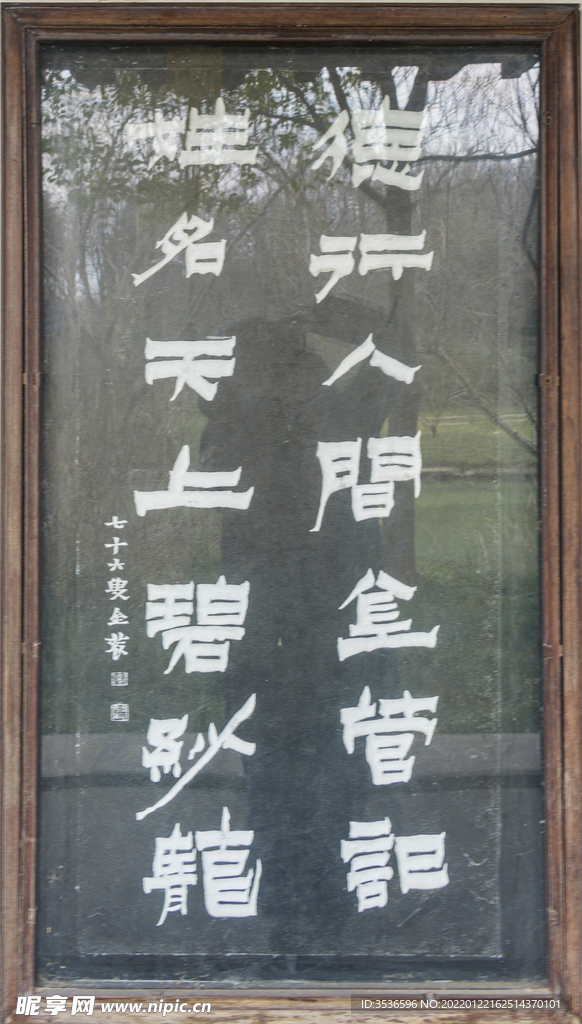 德行人間金管記
姓名天上碧紗籠
七十六叟金農
昵享网 www.nipic.cn
ID:3536596 NO:20220122162514370101